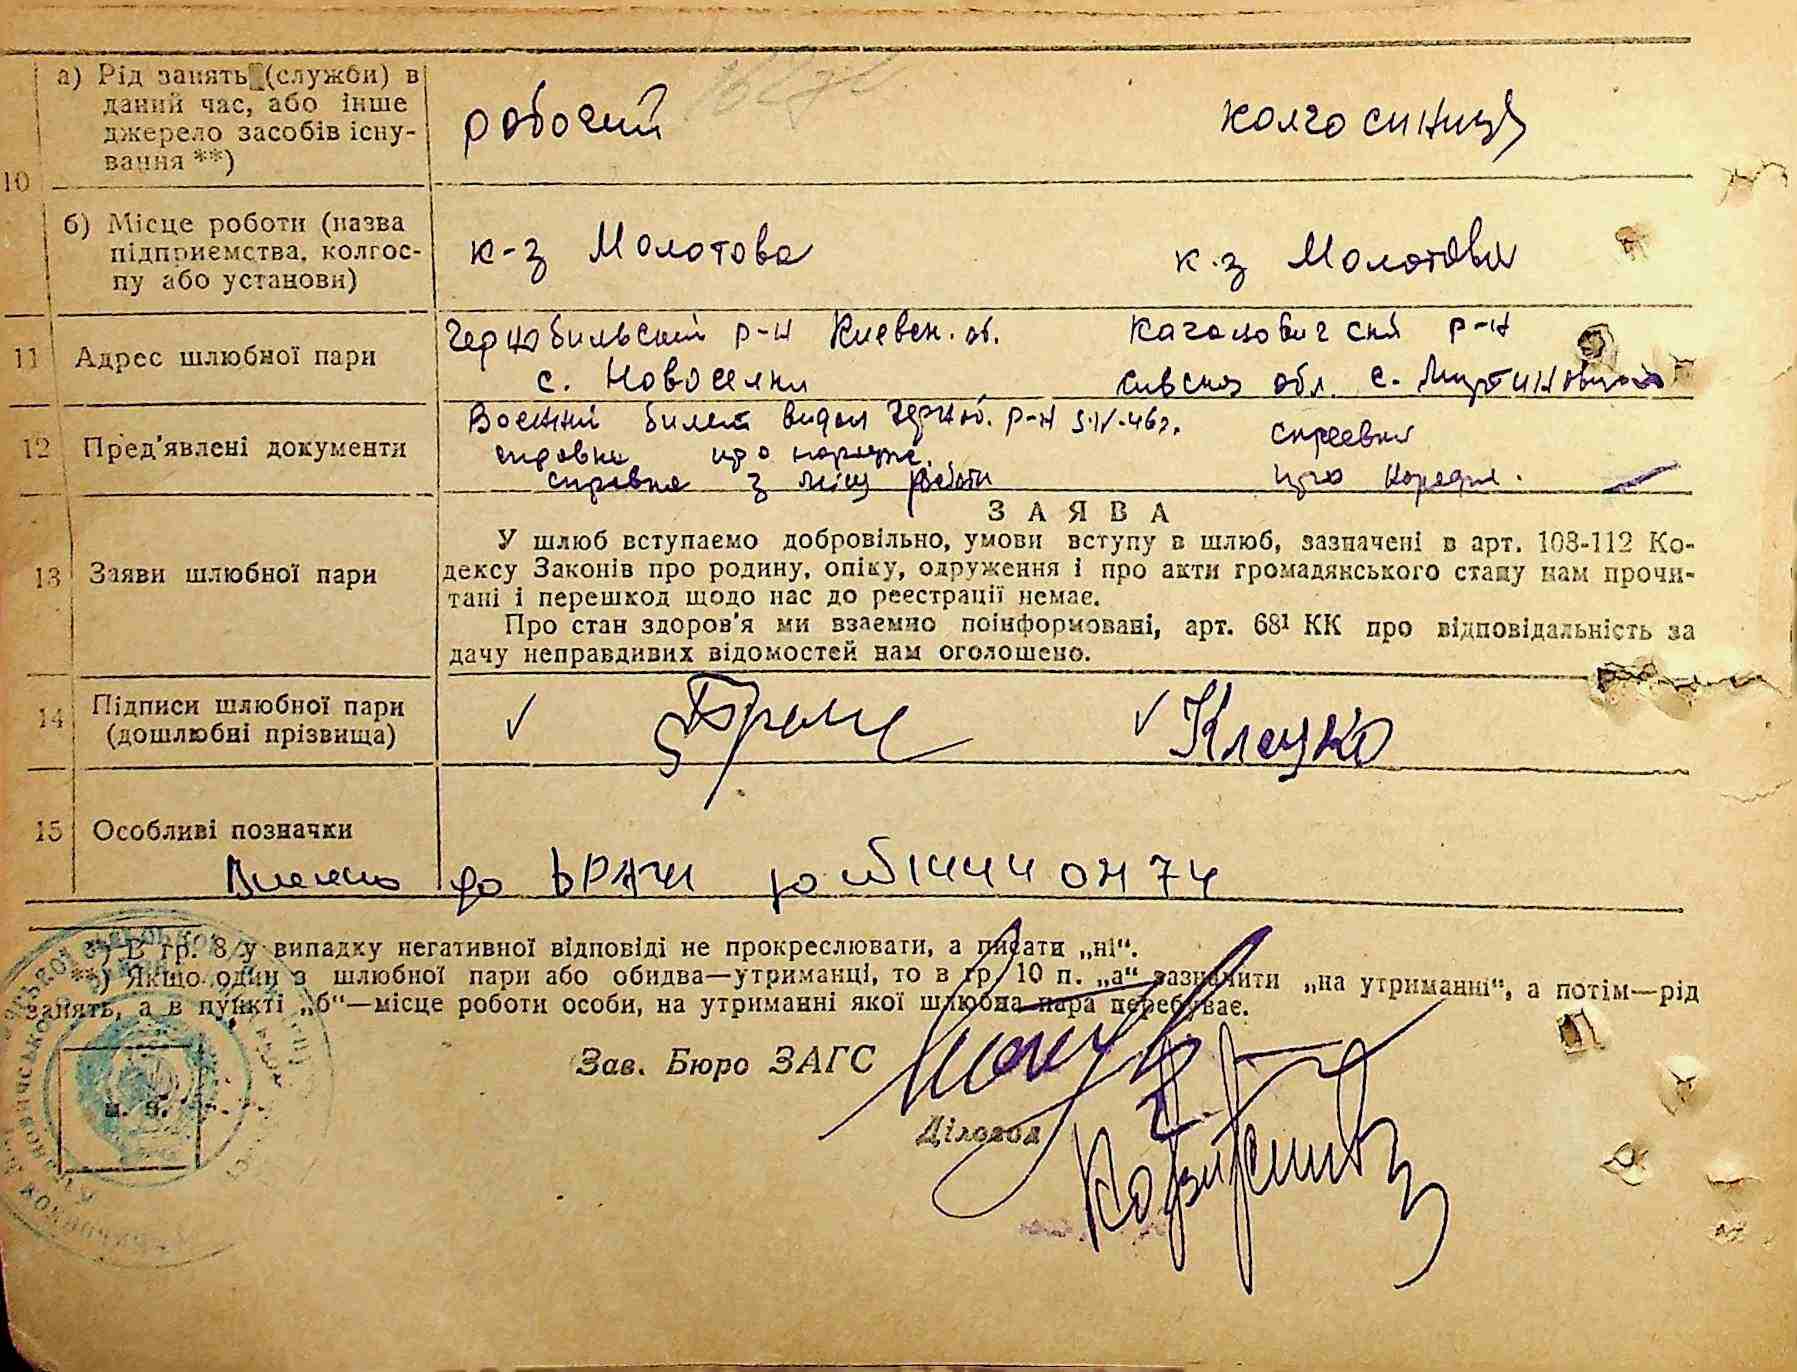 10
а) Рід занять (служби) в
даний час, або інше
джерело засобів існу-
вання **)
робочий
колгоспниця
б) Місце роботи (назва
підприємства, колгос-
пу або установи)
к-з Молотова
к-з Молотова
11
Адрес шлюбної пари
Чернобильский р-н Киевск. об.
с. Новоселки
Кагановичский р-н
обл. с. Мартиновичи
12
Пред'явлені документи
Военний билет видан Черноб. р-н 46г.
справка про народж.
справка з місця роботи
справка
про народж.
ЗАЯВА
13
Заяви шлюбної пари
У шлюб вступаємо добровільно, умови вступу в шлюб, зазначені в арт. 108-112 Ко-
дексу Законів про родину, опіку, одруження і про акти громадянського стану нам прочи-
тані і перешкод щодо нас до реєстрації немає.
Про стан здоров'я ми взаємно поінформовані, арт. 68¹ КК про відповідальність за
дачу неправдивих відомостей нам оголошено.
14
Підписи шлюбної пари
(дошлюбні прізвища)
Клецко
15
Особливі позначки
до
*) В гр. 8 у випадку негативної відповіді не прокреслювати, а писати „ні“.
**) Якщо один з шлюбної пари або обидва—утриманці, то в гр. 10 п. „а“ зазначити „на утриманні“, а потім—рід
занять, а в пункті „б“—місце роботи особи, на утриманні якої шлюбна пара перебуває.
Зав. Бюро ЗАГС
Діловод